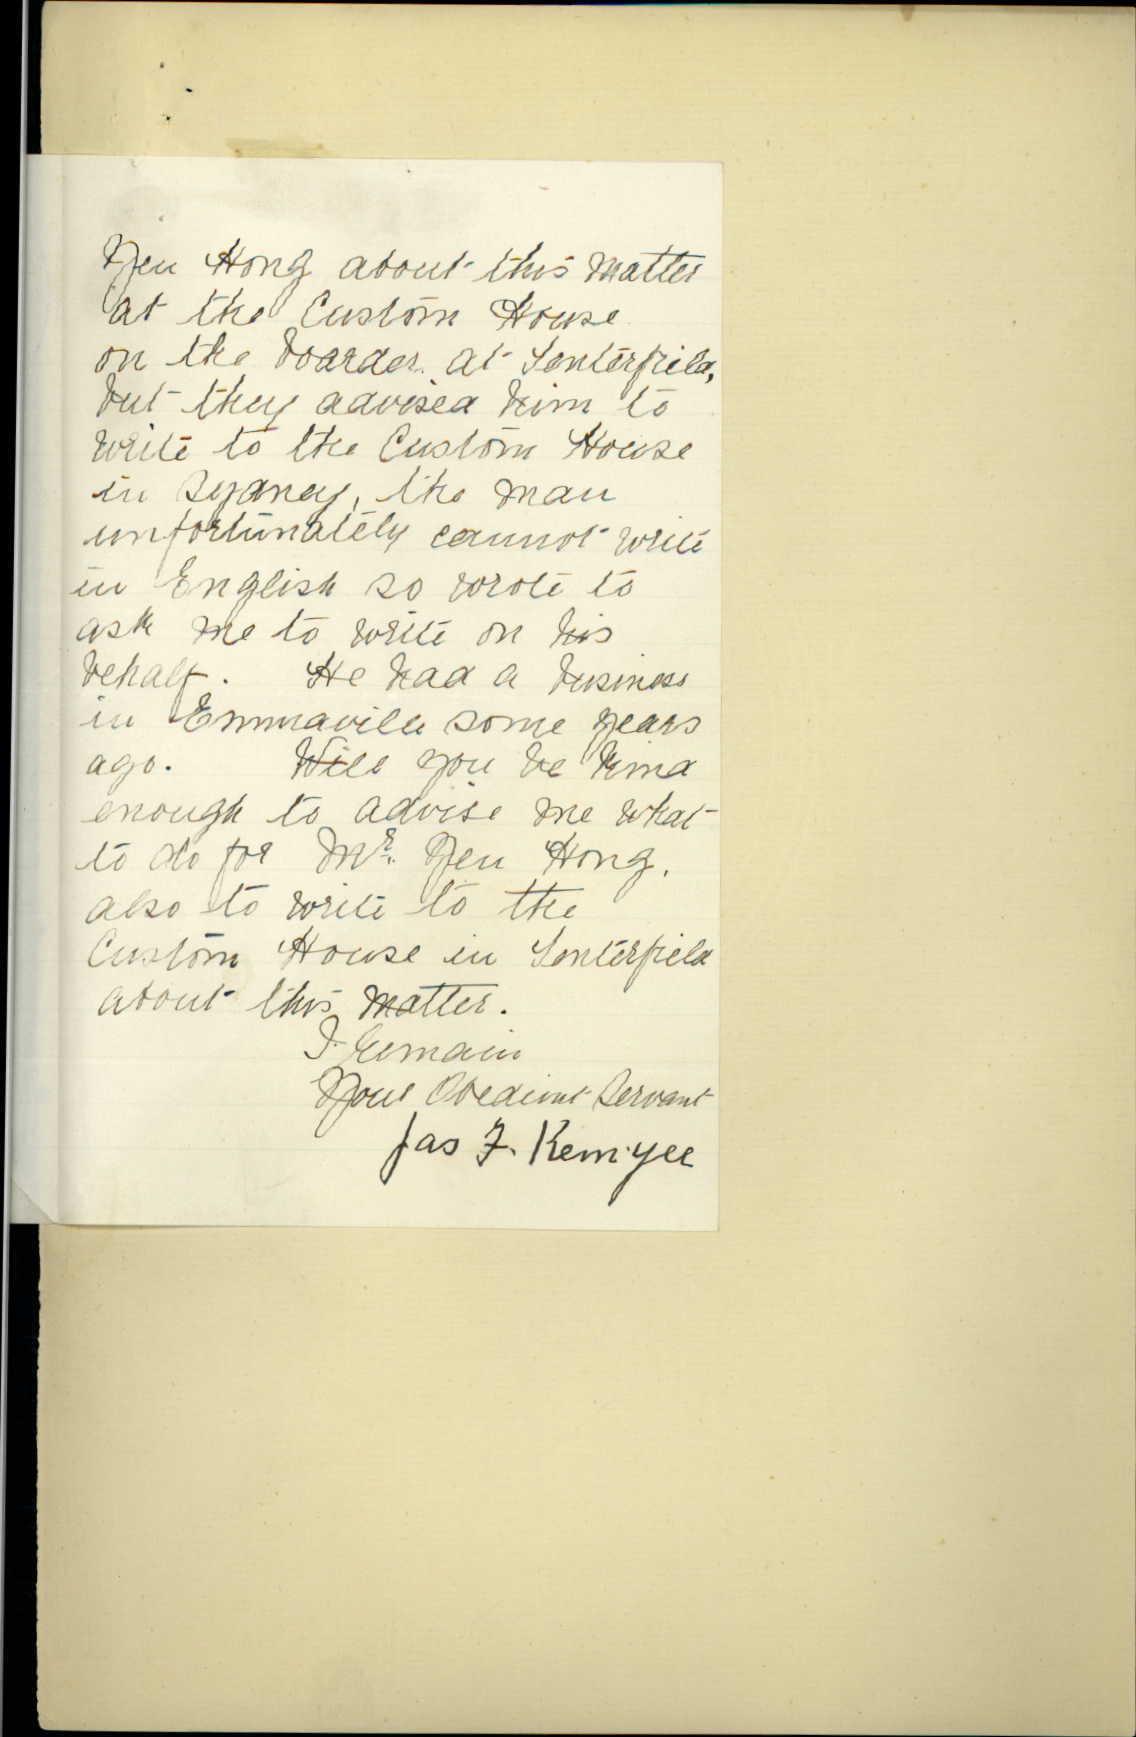 Yen Hong about this matter
at the Custom House
on the boarder at Tenterfield,
but they advised him to
write to the Custom House
in Sydney, the man
unfortunately cannot write
in English so wrote to
ask me to write on his
behalf. He had a business
in Emmaville some years
ago. Will you be kind
enough to advise me what
to do for Mr. Yen Hong,
also to write to the
Custom House in Tenterfield
about this matter.
I remain
Your Obedient Servant
Jas F. Kem-yee